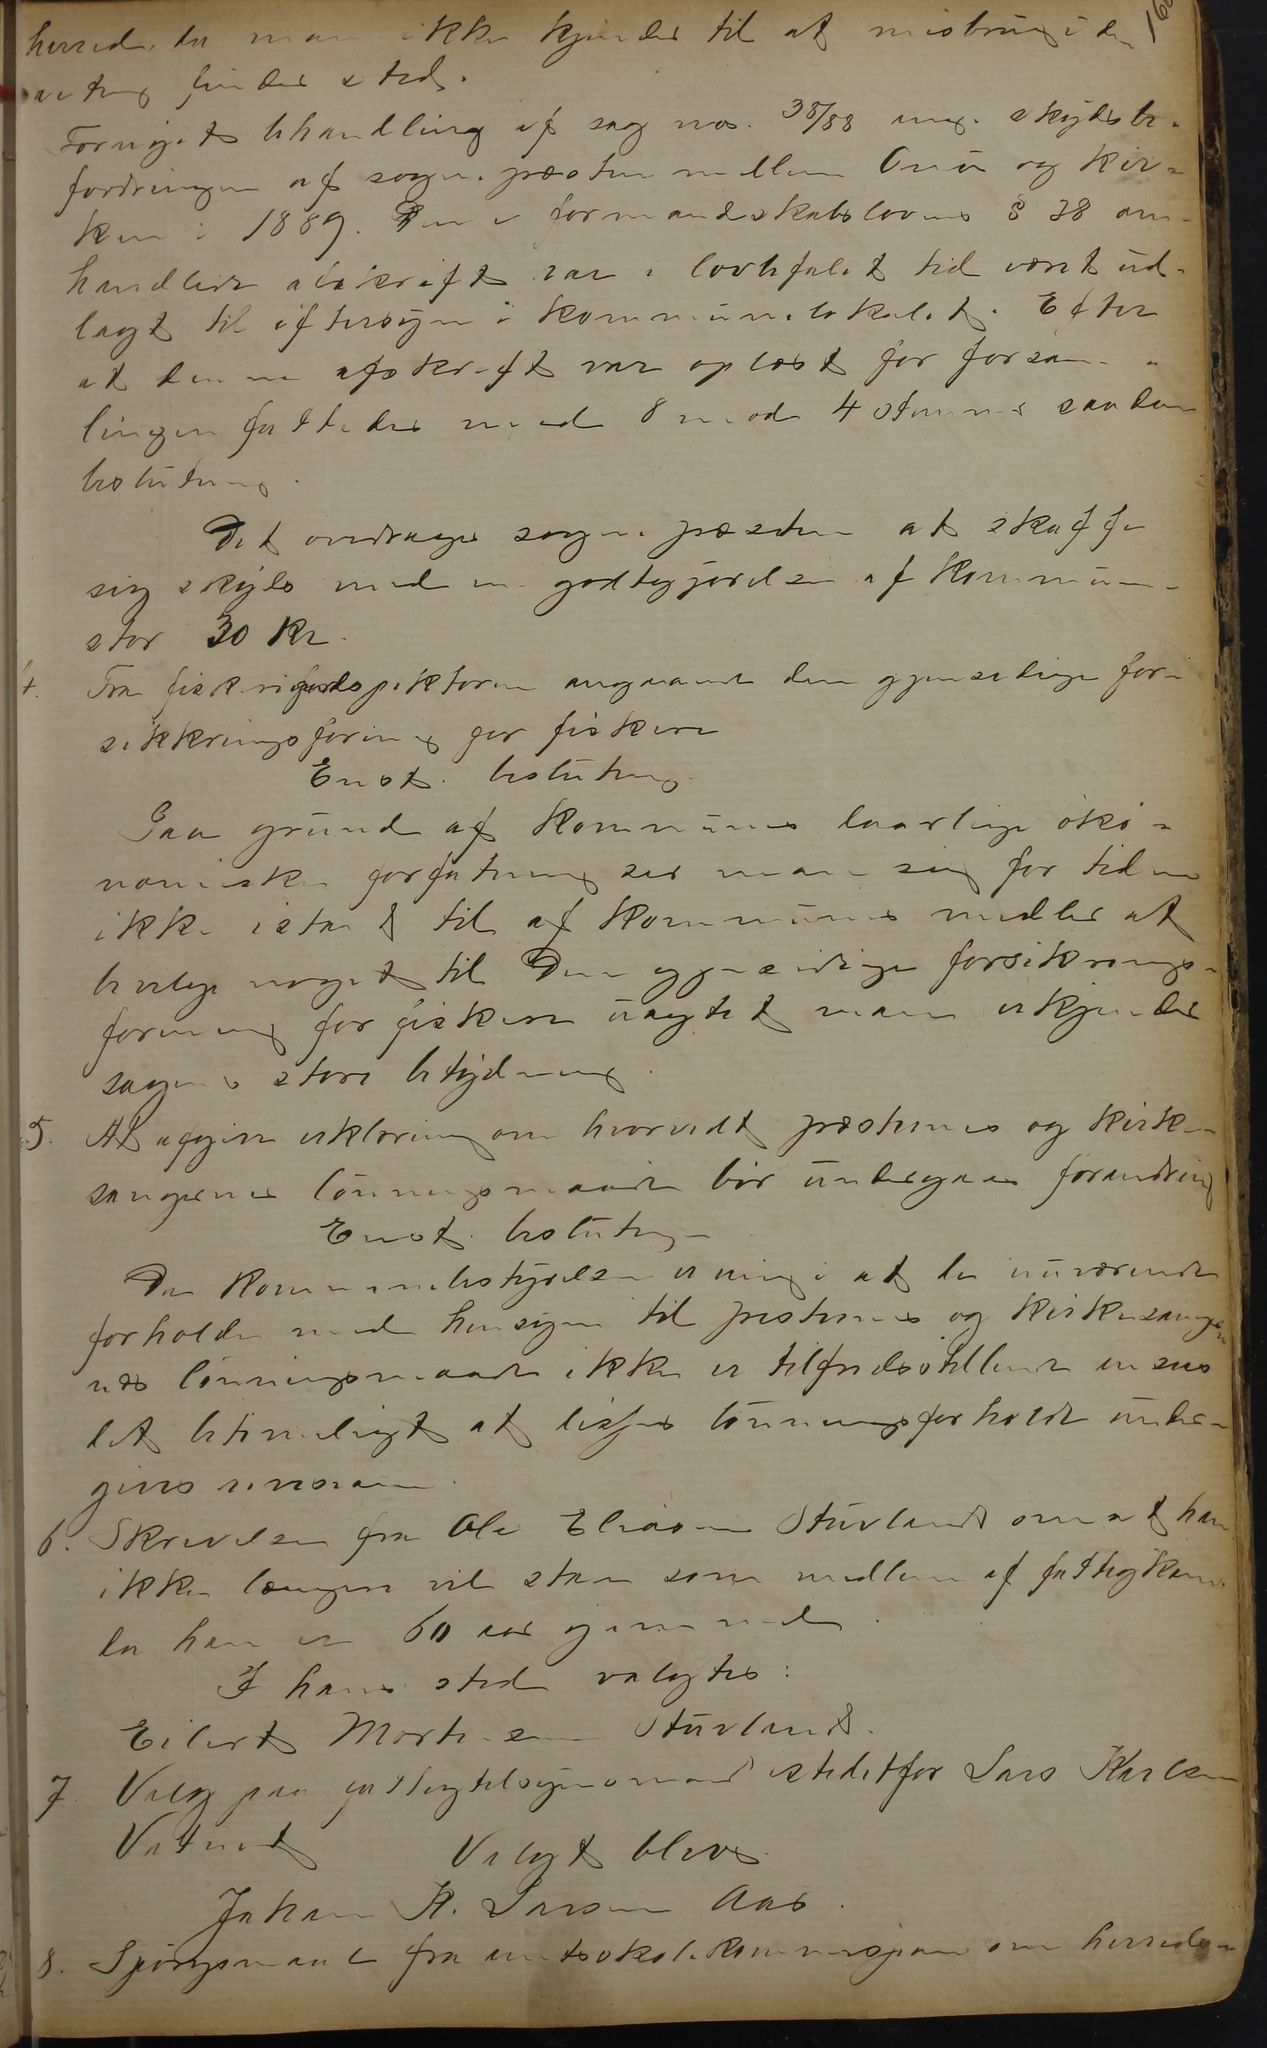 160
herred, da man ikke kjender til at misbrug i den
retning finder sted.
Fornyet behandling af sag no. 38/88 ang. skydsbe-
fordringen af sognepræsten mellem Onø og kir-
ken i 1889. Den i formandskabslovens § 38 om-
handlede afskrift var i lovbefalet tid været ud-
lagt til eftersyn i kommunelokalet. Efter
at denne afskrift var oplæst for forsam-
lingen fattedes med 8 mod 4 stemmer saadan
beslutning.
Det overdrages sognepræsten at skaffe
sig skyds med en godtgjørelse af kommunen
stor 30 kr.
4. Fra fiskeriinspektøren angaaende den gjensidige for-
sikkringsforening for fiskere
Enst. beslutning
Paa grund af kommunens daarlige øko-
nomiske forfatning ser man sig for tiden
ikke istand til af kommunens midler at
bevilge noget til Den gjensidige forsikrings-
forening for fiskere uagtet man erkjender
sagens store betydning.
5. At afgive erklæring om hvorvidt præsternes og kirke-
sangernes lønningsmaade bør undergaa forandring
Enst. beslutning
Da kommunebestyrelsen er enig i at de nuværende
forholde med hensyn til presternes og kirkesanger-
nes lønningsmaade ikke er tilfredsstillende ansees
det betimeligt at disses lønningsforholde under-
gives revision.
6. Skrivelse fra Ole Eliasen Støvland om at han
ikke længere vil staa som medlem af fattigkom.
da han er 60 aar gammel.
I hans sted valgtes:
Eilert Mortensen Støvland.
7. Valg paa fattigtilsynsmand istedetfor Lars Karlsen
Vatnet Valgt blev
Johan K. Larsen Aas.
8. Spørgsmaal fra amtsskolekommisjonen om herreds-